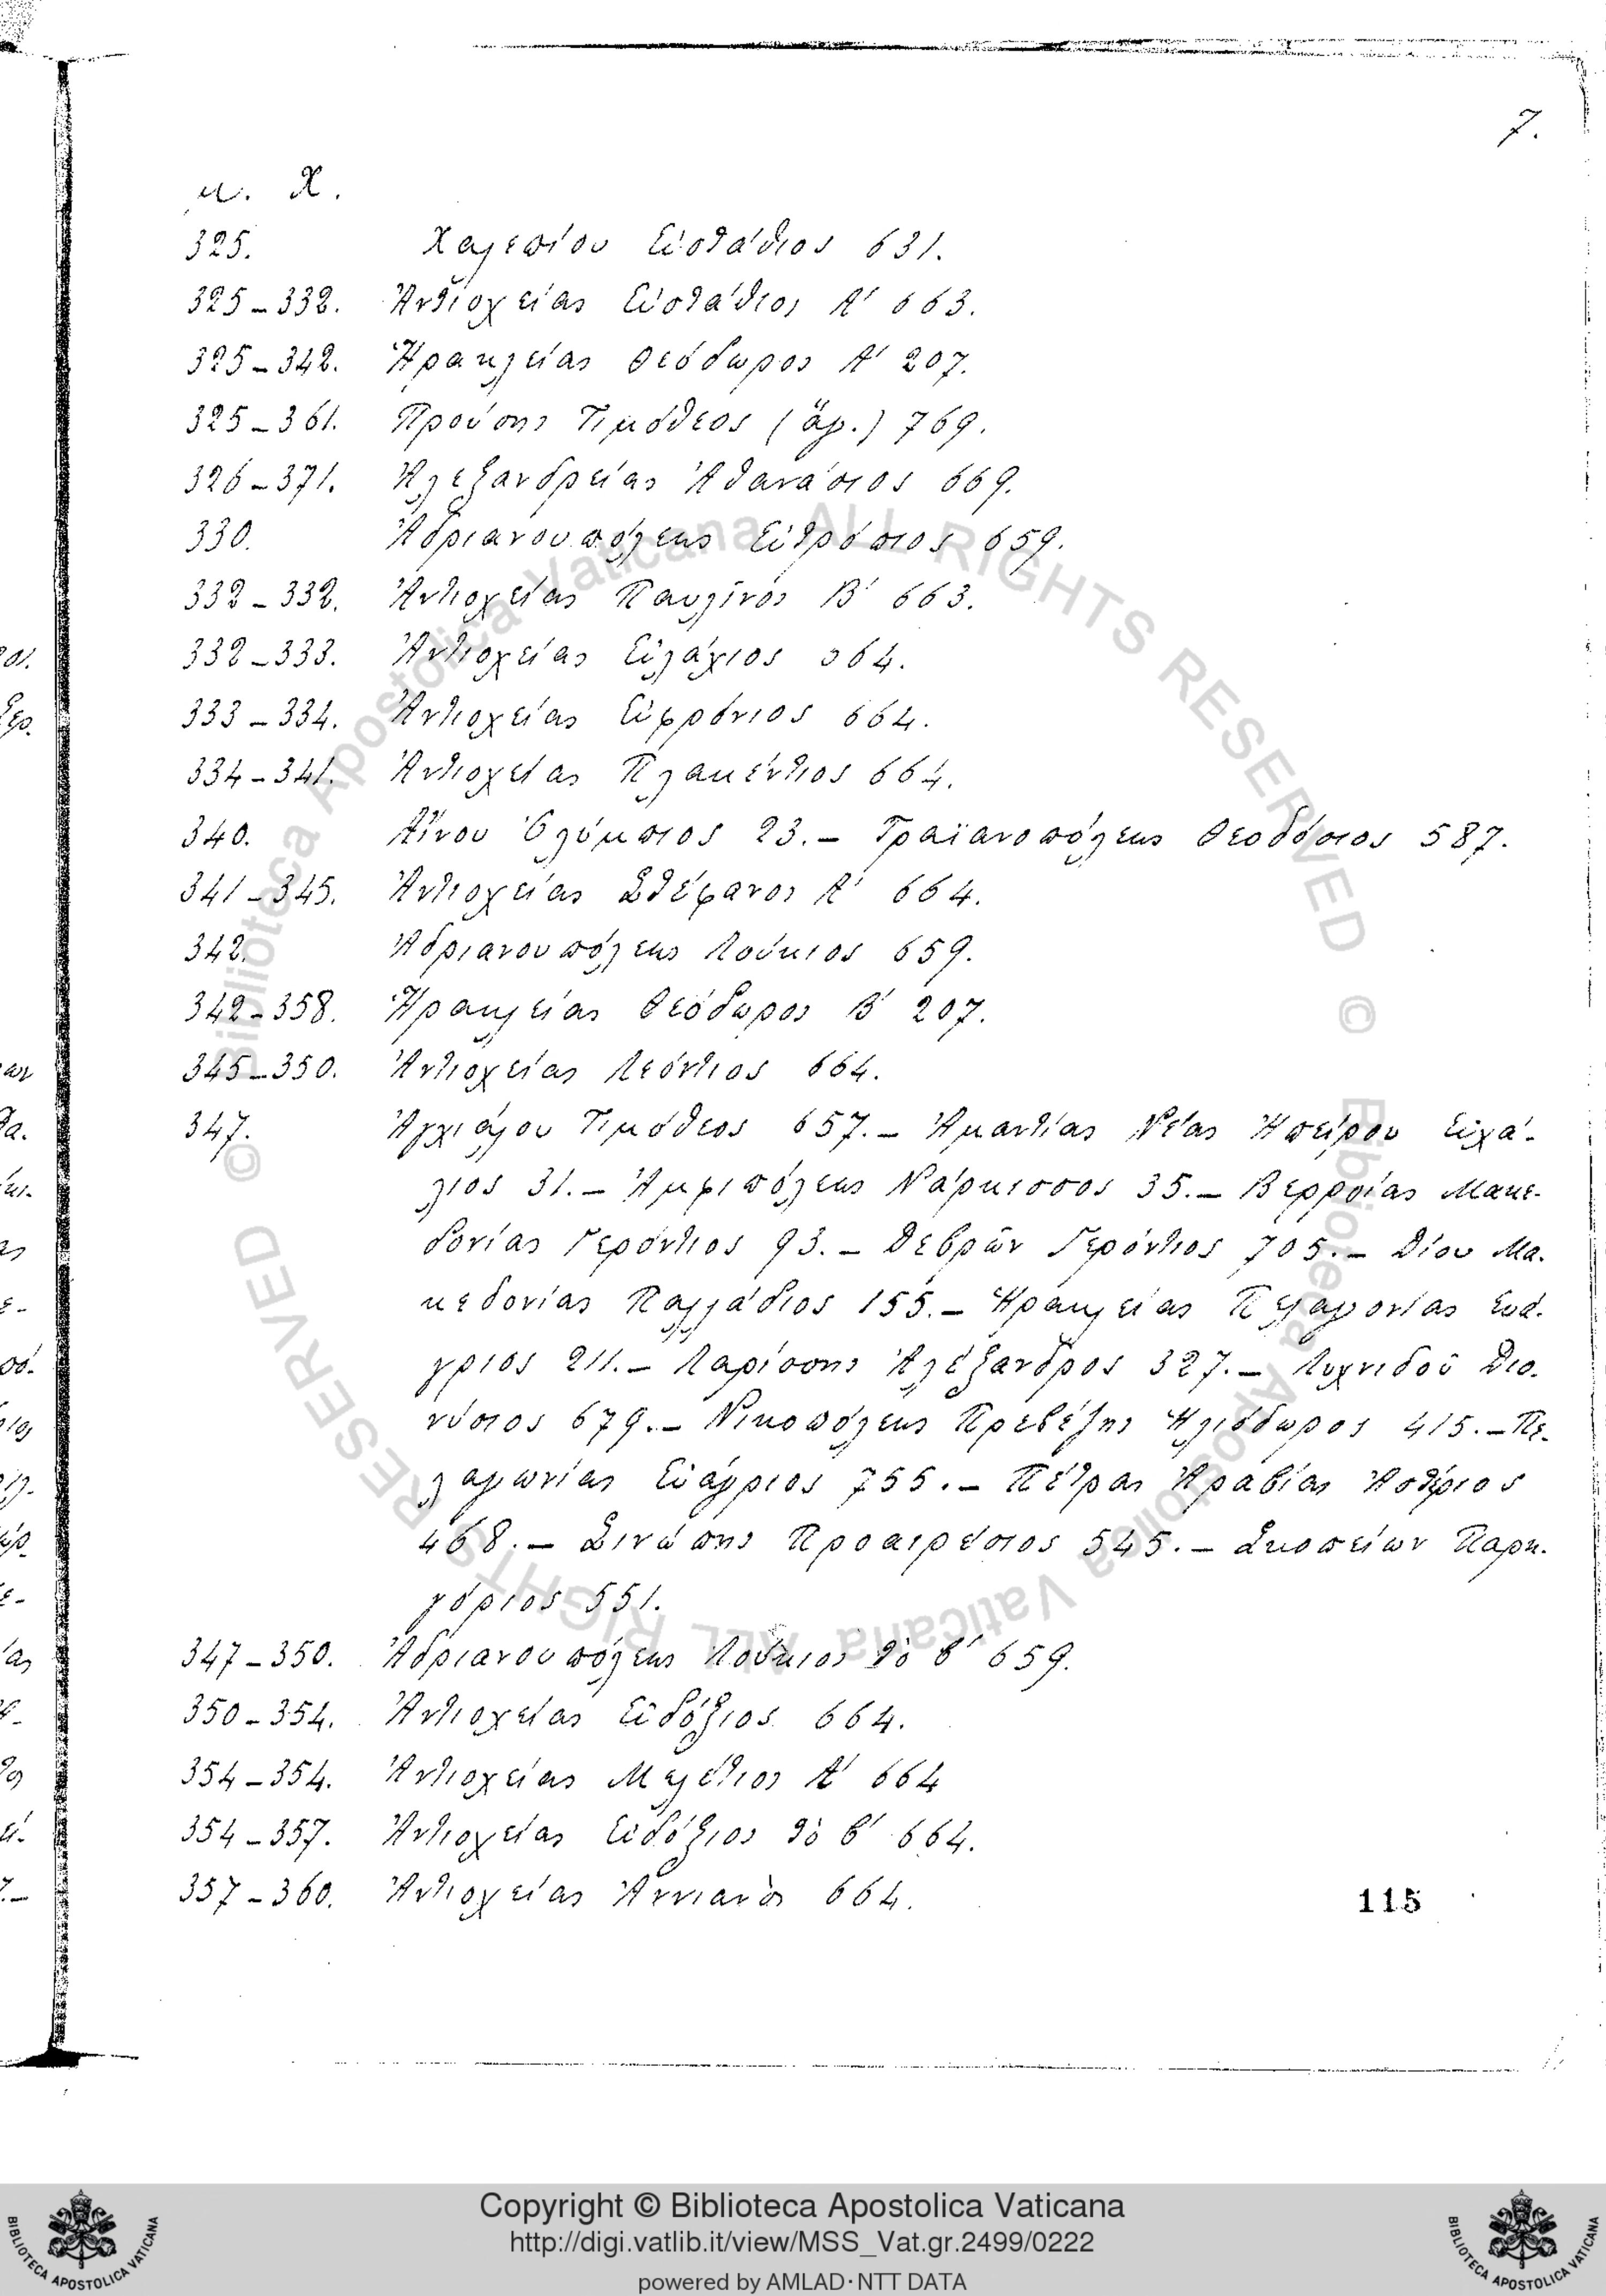 7.
μ. Χ.
325. Χαλεπίου Εὐστάθιος 631.
325-332. Ἀντιοχείας Εὐστάθιος Α' 663.
325-342. Ἡρακλείας Θεόδωρος Α' 207.
325-361. Προύσης Τιμόθεος (ἅγ.) 769.
326-371. Ἀλεξανδρείας Ἀθανάσιος 669.
330. Ἀδριανουπόλεως Εὐτρόπιος 659.
332-332. Ἀντιοχείας Παυλῖνος Β' 663.
332-333. Ἀντιοχείας Εὐλάλιος 664.
333-334. Ἀντιοχείας Εὐφρόνιος 664.
334-341. Ἀντιοχείας Πλακέντιος 664.
340. Αἴνου Ὀλύμπιος 23.- Τραϊανοπόλεως Θεοδόσιος 587.
341-345. Ἀντιοχείας Στέφανος Α' 664.
342. Ἀδριανουπόλεως Λούκιος 659.
342-358. Ἡρακλείας Θεόδωρος Β' 207.
345-350. Ἀντιοχείας Λεόντιος 664.
347. Ἀγχιάλου Τιμόθεος 657.- Ἀμαντίας Νέας Ἠπείρου Εὐγά-
λιος 31.- Ἀμφιπόλεως Νάρκισσος 35.- Βερροίας Μακε-
δονίας Γερόντιος 93.- Δεβρῶν Γερόντιος 705.- Δίου Μα-
κεδονίας Παλλάδιος 155.- Ἡρακλείας Πελαγονίας Εὐά-
γριος 211.- Λαρίσσης Ἀλέξανδρος 327.- Λυχνιδοῦ Διο-
νύσιος 679.- Νικοπόλεως Πρεβέζης Ἡλιόδωρος 415.- Πε-
λαγωνίας Εὐάγριος 755.- Πέτρας Ἀραβίας Ἀστέριος
468.- Σινώπης Προαιρέσιος 545.- Σκοπείων Παρη-
γόριος 551.
347-350. Ἀδριανουπόλεως Λούκιος τὸ β' 659.
350-354. Ἀντιοχείας Εὐδόξιος 664.
354-354. Ἀντιοχείας Μελέτιος Α' 664
354-357. Ἀντιοχείας Εὐδόξιος τὸ β' 664.
357-360. Ἀντιοχείας Ἀννιανὸς 664.
115
© Biblioteca Apostolica Vaticana ALL RIGHTS RESERVED
© Biblioteca Apostolica Vaticana ALL RIGHTS RESERVED
Copyright © Biblioteca Apostolica Vaticana
http://digi.vatlib.it/view/MSS_Vat.gr.2499/0222
powered by AMLAD·NTT DATA
BIBLIOTECA APOSTOLICA VATICANA
BIBLIOTECA APOSTOLICA VATICANA